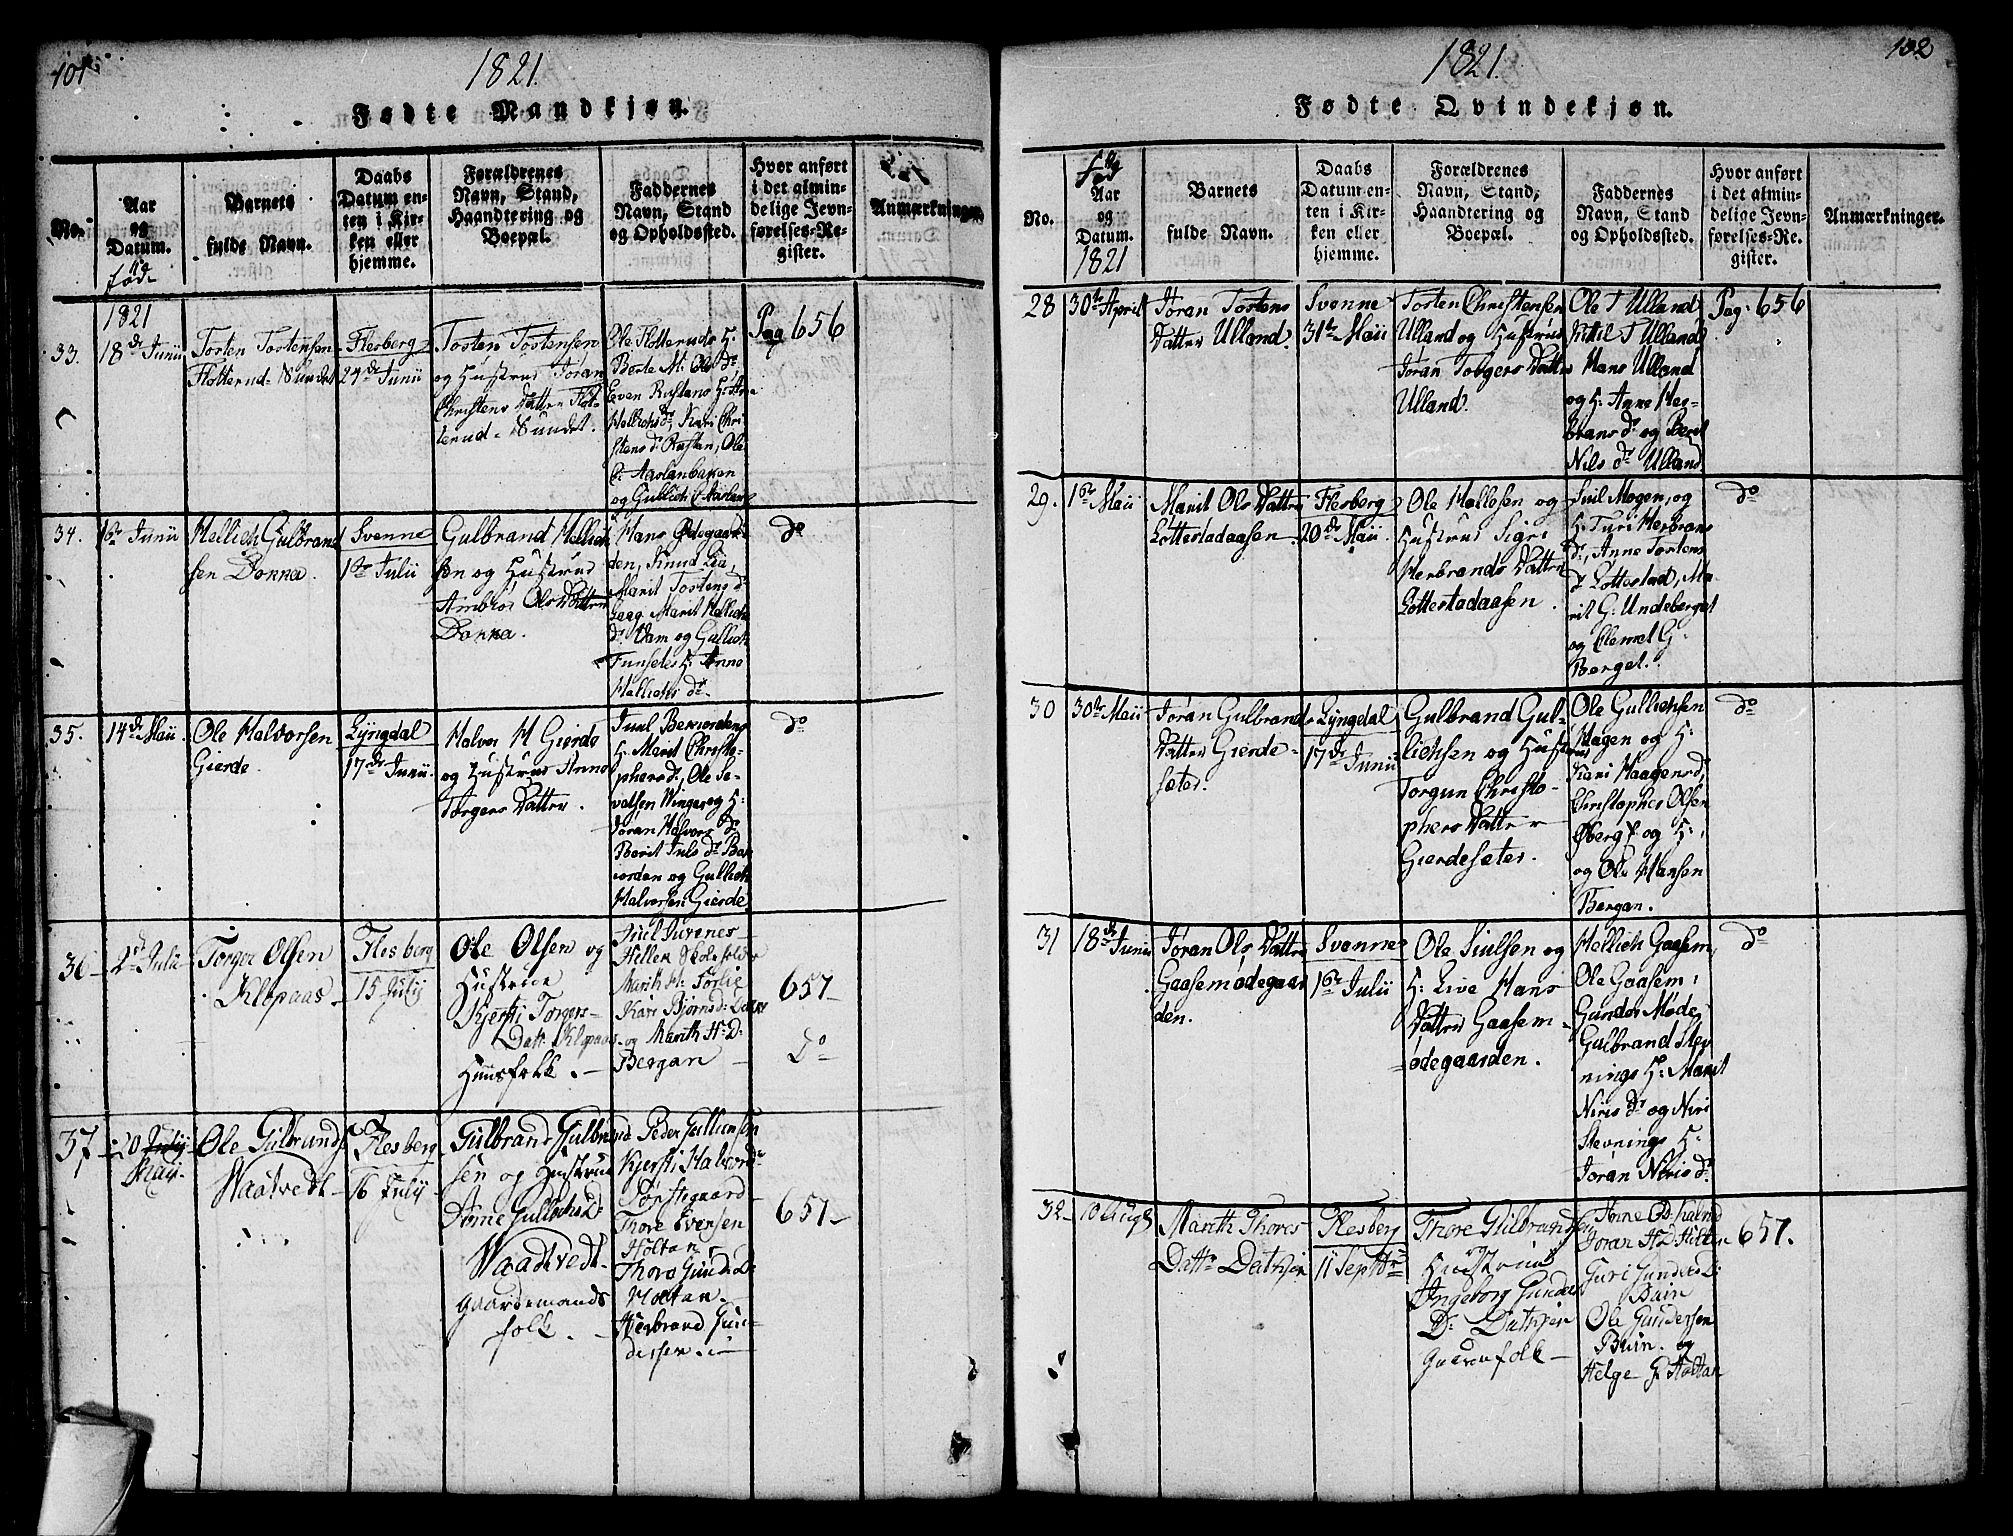 101
1821.
Fødte Mandkjøn.
No.
Aar
og
Datum.
fød
Barnets
fulde Navn.
Daabs
Datum en-
ten i Kir-
ken eller
hjemme.
Forældrenes
Navn, Stand,
Haandtering og
Boepæl.
Faddernes
Navn, Stand
og Opholdssted.
Hvor anført
i det almin-
delige Jevn-
førelses-Re-
gister.
Anmærkninger.
33.
1821
18de Junii
Torsten Torstensen
Flotterud-Sundet
Flesberg
24de Junii
Torsten Torstensen
og Hustrue Jøran
Christens Datter Flot-
terud-Sundet.
Ole Flotteruds H:
Berte M: Ols Dr
Even Rustans H: Anne
Hellichsdr, Kari Chri-
stens dr Rustan, Ole
C: Aaslandbakken
og Gullich C: Aasland
Pag 656
34.
16de Junii
Hellich Gulbrand
sen Donna.
Svenne
1ste Julii
Gulbrand Hellich
sen og Hustrue
Ambior Ols Datter
Donna.
Hans Ødegaar-
den, Knud Lia,
Marit Torstens dr
Laag Marit Hellichs
dr Vam og Gullich
Funsetes H: Anne
Hellichs dr
do
35.
14de Maii
Ole Halvorsen
Gierde
Lyngdal
17de Junii.
Halvor H Gierde
og Hustrue Anne
Torgers Datter.
Juul Bekiordens
H: Marit Christo-
phersd:, Ole Se-
valsen Winger og H:
Jøran Halvors dr
Berit Juls dr Bek-
iorden og Gullich
Halvorsen Gierde
do
36
2d Julii
Torger Olsen
Klopaas
Flesberg
15 July
Ole Olsen og
Hustrue
Kjersti Torgers-
Datt: Klopaas
Huusfolk.
Juel Juvenes
Hellek Skoleholder
Marith H: Førlie
Kari Bjørnsd: Dalen
og Marith H: D:
Bergan
657
Do
37
20 July
May
Ole Gulbrands
Waatvedt
Flesberg
16 July
Gulbrand Gulbrand
sen og Hustrue
Anne Gullichs D:
Waadtvedt
Gaardemands
folk.
Peder Gullichsen
Kjersti Halvord:
Tønstegaard
Thore Evensen
Holtan
Thora Gund: D:
Holtan
Herbrand Gun-
dersen
657
102
1821.
Fødte Qvindekjøn.
No.
fød
Aar
og
Datum.
1821
Barnets
fulde Navn.
Daabs
Datum en-
ten i Kir-
ken eller
hjemme.
Forældrenes
Navn, Stand,
Haandtering og
Boepæl.
Faddernes
Navn, Stand
og Opholdssted.
Hvor anført
i det almin-
delige Jevn-
førelses-Re-
gister.
Anmærkninger.
28
30te April
Jøran Torstens
Datter Ulland.
Svenne
31te Maii
Torsten Christensen
Ulland og Hustrue
Jøran Torgers Datter
Ulland.
Ole T Ulland
Kittil T Ulland
Hans Ulland
og H: Anne Her-
brans dr og Berit
Nils dr Ulland
Pag: 656
29.
16de Maii
Marit Ols Datter
Lottestadaasen
Flesberg
20de Maii
Ole Hellesen og
Hustrue Sigri
Herbrands Datter
Lottestadaasen.
Juil Mogen, og
H: Turi Herbrans
dr, Anne Torstens
dr Lottestad, Ma-
rit G: Undeberget
og Clemet G:
Berget.
do
30
30te Maii
Jøran Gulbrands
Datter Gierde-
sæter.
Lyngdal
17de Junii
Gulbrand Gul-
lichsen og Hustrue
Torgun Christo-
phers Datter
Gierdesæter.
Ole Gullichsen
Hagen og H:
Kari Haagensd,
Christopher Olsen
Øberg og H:
og Ole Hansen
Bergan.
do
31
18de Junii
Jøran Ols Datter
Gaasemødegaar
den.
Svenne
1ste Julii
Ole Juulsen og
H: Live Hans
Datter Gaasem-
ødegaarden.
Hellich Gaasem,
Ole Gaasem,
Gunder Møde,
Gulbrand Stev
nings H: Marit
Niris dr og Niri
Stevnings H:
Jøran Niris dr
do
32
10 Aug
Marith Thores
Datt: Dathsjør
Flesberg
11 Septbr
Thore Gulbrandsen
og
Hustrue
Ingeborg Gunder
D: Dathsjør
Gaardmfolk
Anne Od: Kalmd
Jøran H D: Holtan
Turi Gunders D:
Buin
Ole Gundersen
Buin. og
Helge G: Holtan
657.